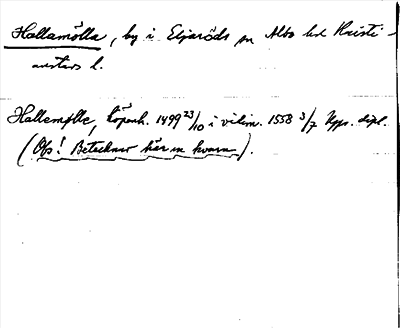 Hallamölla, by i Eljaröds sn Albo hd Kristi-
anstads l.
Hallemølle, Köpenh. 1499 23/10 i vidim. 1558 3/7 Upps. dipl.
(Obs! Betecknar här en kvarn).